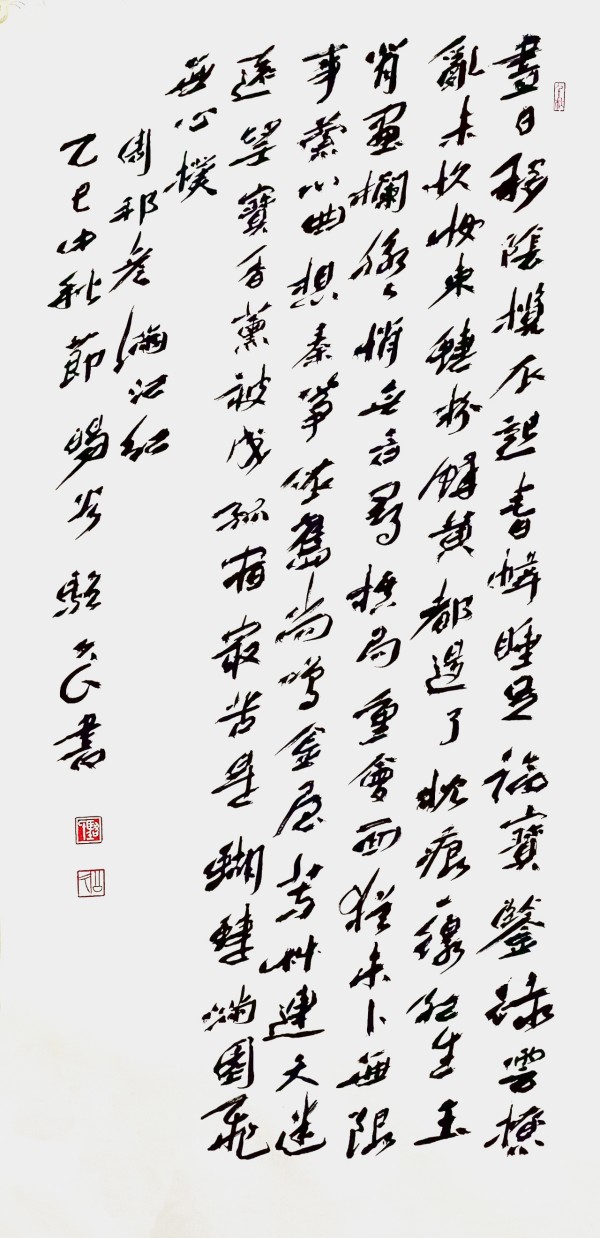 晝日移陰攬衣起春幃睡足臨寶鑒綠雲撩
亂未忺妝束蝶粉蜂黃都過了枕痕一線紅生玉
背畫欄脉〻悄無言尋棋局重會面猶未卜無限
事縈心曲想秦箏依舊尚鳴金屋芳艸連天迷
遠望寶香薰被成孤宿最苦是蝴蝶滿園飛
無心撲
周邦彥滿江紅
乙巳中秋節暘谷書